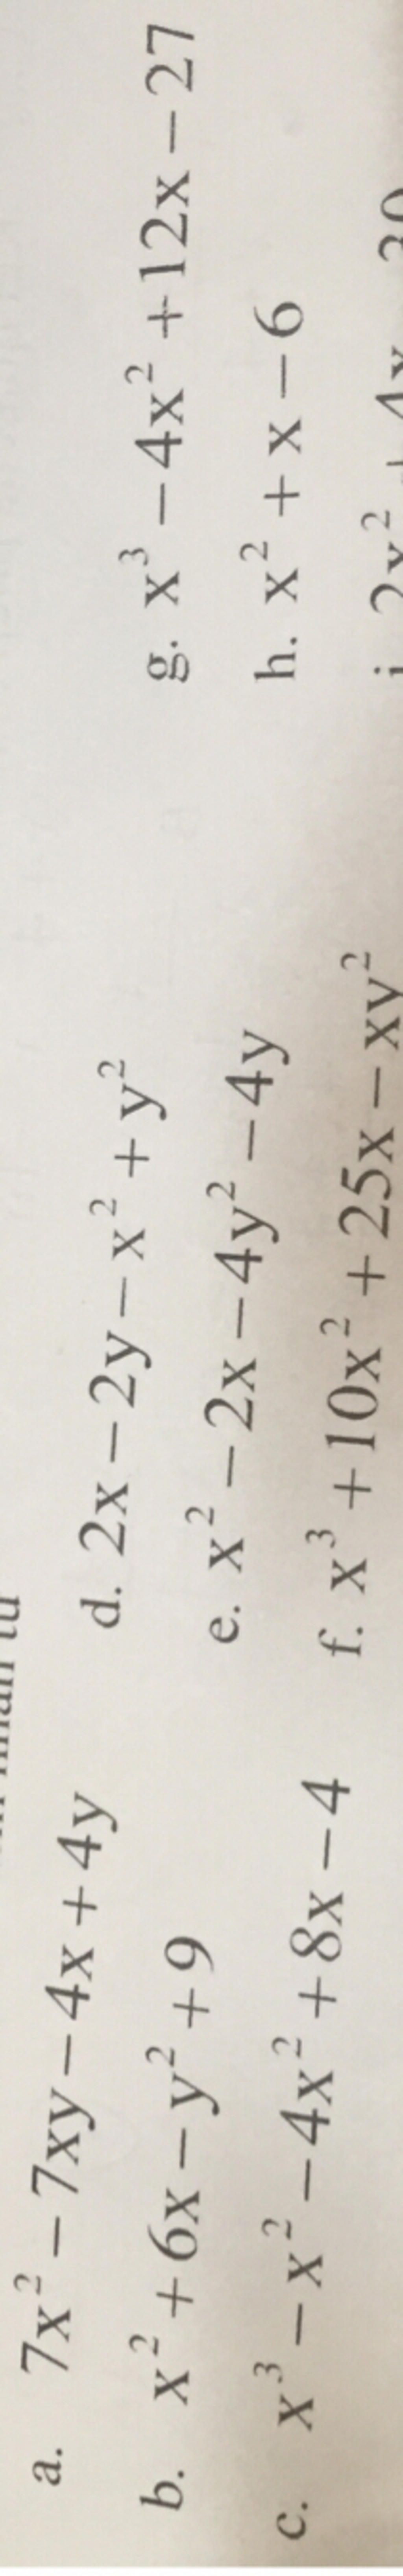 nhân tử
a. 7x² – 7xy – 4x + 4y
b. x² + 6x – y² + 9
c. x³ – x² – 4x² + 8x – 4
d. 2x – 2y – x² + y²
e. x² – 2x – 4y² – 4y
f. x³ + 10x² + 25x – xy²
g. x³ – 4x² + 12x – 27
h. x² + x – 6